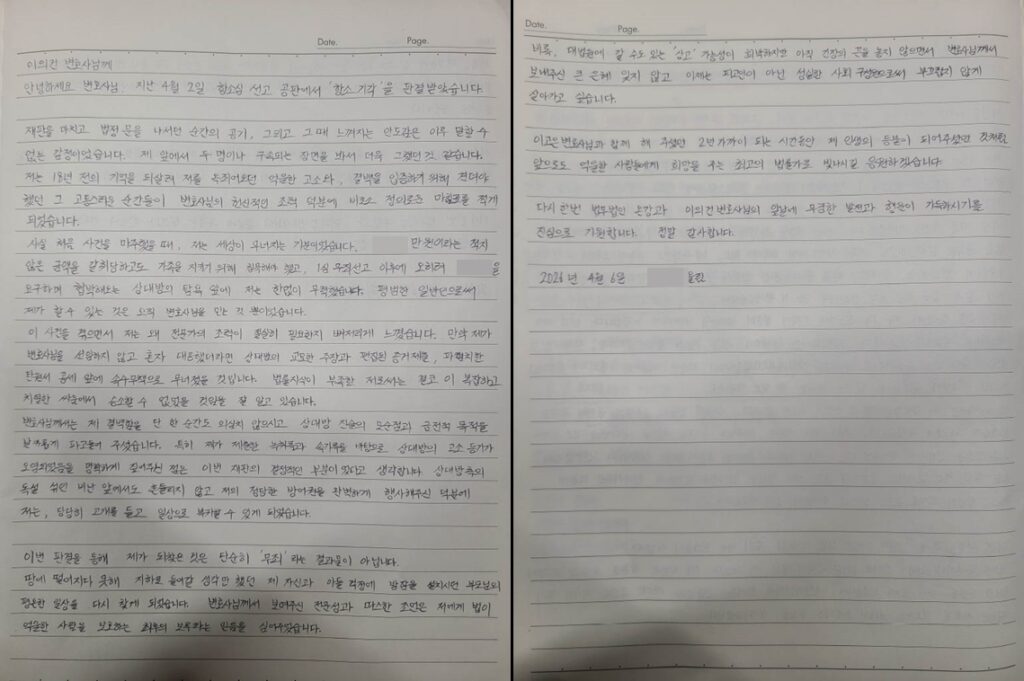 Date. Page.
이의건 변호사님께
안녕하세요 변호사님. 지난 4월 2일 항소심 선고 공판에서 '항소 기각'을 판결받았습니다.
재판을 마치고 법정 문을 나서던 순간의 공기, 그리고 그때 느껴지는 안도감은 이루 말할 수
없는 감정이었습니다. 제 앞에서 두 명이나 구속되는 장면을 봐서 더욱 그랬던 것 같습니다.
저는 18년 전의 기억을 되살려 저를 옥죄어오던 억울한 고소와, 결백을 입증하기 위해 견뎌야
했던 그 고통스러운 순간들이 변호사님의 헌신적인 조력 덕분에 비로소 정의로운 마침표를 찍게
되었습니다.
사실 처음 사건을 마주했을 때, 저는 세상이 무너지는 기분이었습니다. 만원이라는 적지
않은 금액을 갈취당하고도 가족을 지키기 위해 침묵해야 했고, 1심 무죄선고 이후에 오히려 을
요구하며 협박해오는 상대방의 탐욕 앞에 저는 한없이 무력했습니다. 평범한 일반인으로써
제가 할 수 있는 것은 오직 변호사님을 믿는 것 뿐이었습니다.
이 사건을 겪으면서 저는 왜 전문가의 조력이 절실히 필요한지 뼈저리게 느꼈습니다. 만약 제가
변호사님을 선임하지 않고 혼자 대응했더라면 상대방의 교묘한 주장과 편집된 증거자료, 파렴치한
탄원서 공세 앞에 속수무책으로 무너졌을 것입니다. 법률지식이 부족한 저로써는 결코 이 복잡하고
치열한 싸움에서 승소할 수 없었을 것임을 잘 알고 있습니다.
변호사님께서는 제 결백함을 단 한 순간도 의심치 않으시고 상대방 진술의 모순점과 금전적 목적을
날카롭게 파고들어 주셨습니다. 특히 제가 제출한 녹취록과 속기록을 바탕으로 상대방의 고소 동기가
오염되었음을 명확하게 짚어주신 점은 이번 재판의 결정적인 부분이었다고 생각합니다. 상대방측의
독설 섞인 비난 앞에서도 흔들리지 않고 저의 정당한 방어권을 완벽하게 행사해주신 덕분에
저는, 당당히 고개를 들고 일상으로 복귀할 수 있게 되었습니다.
이번 판결을 통해 제가 되찾은 것은 단순히 '무죄'라는 결과물이 아닙니다.
땅에 떨어지다 못해 지하로 들어갈 생각만 했던 제 자신과 아들 걱정에 밤잠을 설치시던 부모님의
평온한 일상을 다시 찾게 되었습니다. 변호사님께서 보여주신 전문성과 따스한 조언은 저에게 법이
억울한 사람을 보호하는 최후의 보루라는 믿음을 심어주었습니다.
Date. Page.
비록, 대법원에 갈 수도 있는 '상고' 가능성이 희박하지만 아직 긴장의 끈을 놓지 않으면서 변호사님께서
보내주신 큰 은혜 잊지 않고 이제는 피고인이 아닌 성실한 사회 구성원으로써 부끄럽지 않게
살아가고 싶습니다.
이고은변호사님과 함께 해 주셨던 2년 가까이 되는 시간동안 제 인생의 등불이 되어주셨던 것처럼
앞으로도 억울한 사람들에게 희망을 주는 최고의 법률가로 빛나시길 응원하겠습니다
다시 한번 법무법인 온강과 이의건 변호사님의 앞날에 무궁한 발전과 행운이 가득하시기를
진심으로 기원합니다. 정말 감사합니다.
2026년 4월 6일 드림